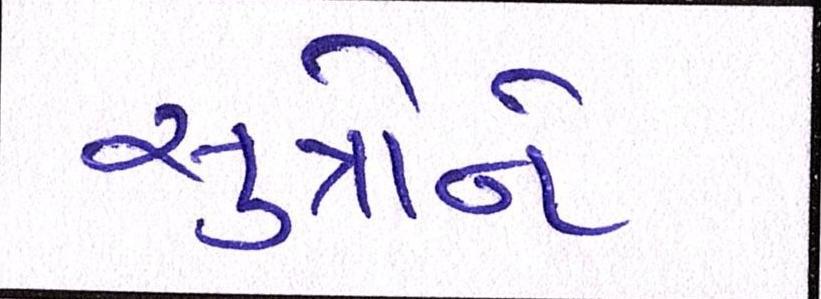 સુત્રોને